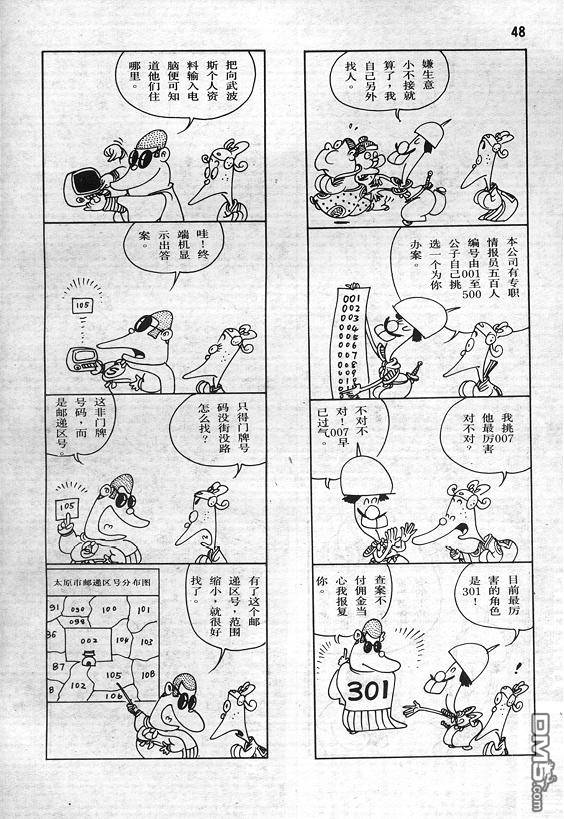 48
嫌生意
小不接就
算了，我
自己另外
找人。
本公司有专职
情报员五百人
编号由001至500
公子自己挑
选一个为你
办案。
001
002
003
004
005
006
007
008
009
010
我挑007
他最厉害
对不对？
不对不
对！007早
已过气。
目前最厉
害的角色
是301！
查案不
付佣金当
心我报复
你。
301
!
把向武波
斯个人资
料输入电
脑便可知
道他们住
哪里。
哇！终
端机显
示出答
案。
105
只得门牌号
码没街没路
怎么找？
这非门牌
号码，而
是邮递区号。
105
有了这个邮
递区号，范围
缩小，就很好
找了。
太原市邮递区号分布图
91
030
100
101
098
86
002
104
103
87
105
108
8
102
106
DM5.com